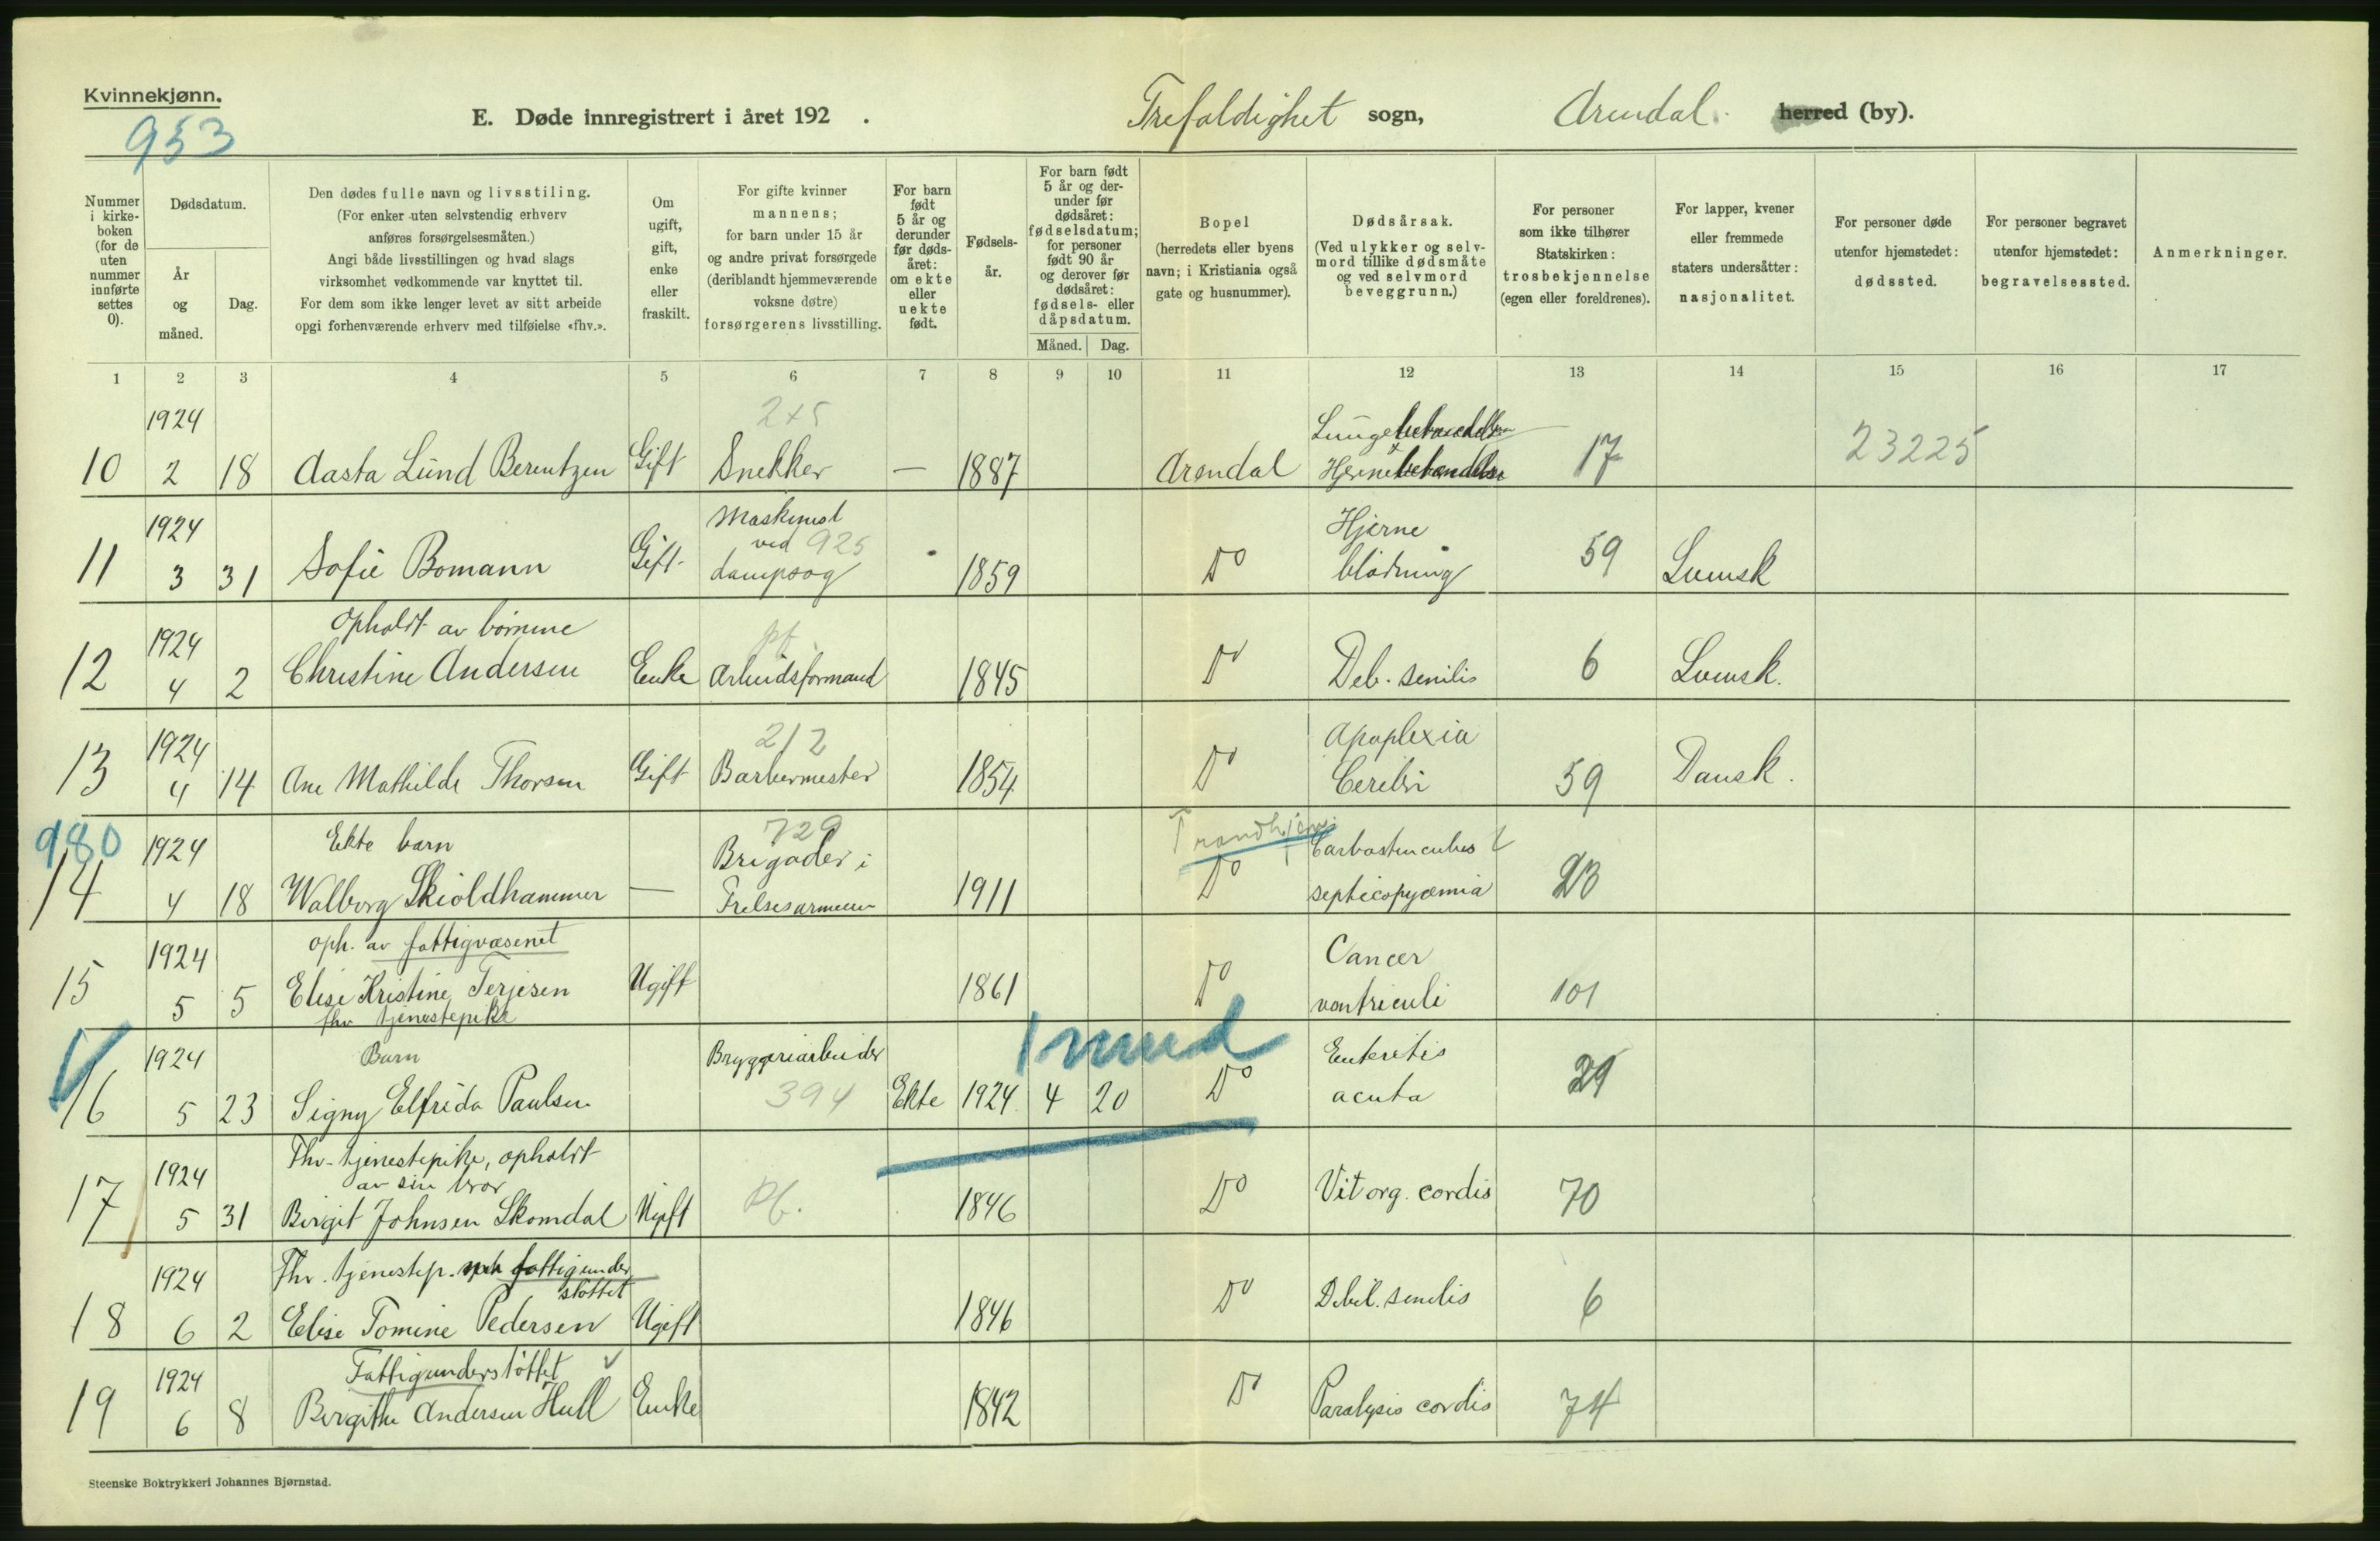 Kvinnekjønn.
953
E. Døde innregistrert i året 192 .
Trefoldighet sogn,
Arendal. herred (by).
Nummer i kirke- boken (for de uten nummer innførte settes 0).
Dødsdatum.
År og måned.
Dag.
Den dødes fulle navn og livsstiling.
(For enker uten selvstendig erhverv
anføres forsørgelsesmåten.)
Angi både livsstillingen og hvad slags
virksomhet vedkommende var knyttet til.
For dem som ikke lenger levet av sitt arbeide
opgi forhenværende erhverv med tilføielse «fhv.».
Om ugift, gift, enke eller fraskilt.
For gifte kvinner
mannens;
for barn under 15 år
og andre privat forsørgede
(deriblandt hjemmeværende
voksne døtre)
forsørgerens livsstilling.
For barn født 5 år og derunder før døds- året: om ekte eller uekte født.
Fødsels- år.
For barn født
5 år og der-
under før
dødsåret:
fødselsdatum;
for personer
født 90 år
og derover før
dødsåret:
fødsels- eller
dåpsdatum.
Måned. Dag.
Bopel
(herredets eller byens
navn; i Kristiania også
gate og husnummer).
Dødsårsak.
(Ved ulykker og selv-
mord tillike dødsmåte
og ved selvmord
beveggrunn.)
For personer
som ikke tilhører
Statskirken:
trosbekjennelse
(egen eller foreldrenes).
For lapper, kvener
eller fremmede
staters undersåtter:
nasjonalitet.
For personer døde
utenfor hjemstedet:
dødssted.
For personer begravet
utenfor hjemstedet:
begravelsessted.
Anmerkninger.
1 2 3 4 5 6 7 8 9 10 11 12 13 14 15 16 17
1924 2+5 Lunge
10 2 18 Aasta Lund Berentzen Gift Snekker — 1887 Arendal Hjerne 17 23225
1924 Maskinist Hjerne
ved 925
11 3 31 Sofie Bomann Gift. dampsag 1859 Do blødning 59 Svensk
1924 Opholdt av børnene pf.
12 4 2 Christine Andersen Enke Arbeidsformand 1845 Do Deb. senilis 6 Svensk.
1924 212 Apoplexia
13 4 14 Ane Mathilde Thorsen Gift Barbermester 1854 Do Cerebri 59 Dansk.
980 1924 Ekte barn 729 Brigader i Trondhjem
14 4 18 Walborg Skioldhammer — Frelsesarmeen 1911 Do septicopyæmia 23
1924 oph. av fattigvæsenet Cancer
15 5 5 Elise Kristine Terjesen Ugift 1861 Do ventriculi 101
fhv tjenestepike
1924 Barn Bryggeriarbeider 1 mnd Enteritis
16 5 23 Signy Elfrida Paulsen 394 Ekte 1924 4 20 Do acuta 29
1924 Fhv. tjenestepike, opholdt
av sin bror
17 5 31 Birgit Johnsen Skomdal Ugift Pf. 1846 Do Vit org. cordis 70
1924 Fhv. tjenestep. fattigunder
støttet
18 6 2 Elise Tomine Pedersen Ugift 1846 Do Debil. senilis 6
1924 Fattigunderstøttet
19 6 8 Birgithe Andersen Hull Enke 1842 Do Paralysis cordis 74
Steenske Boktrykkeri Johannes Bjørnstad.